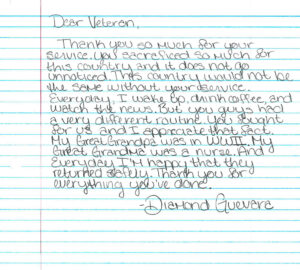 Dear Veteran,
Thank you so much for your
service. You sacraficed so much for
this country and it does not go
unnoticed. This country would not be
the same without your service.
Everyday, I wake up, drink coffee, and
watch the news. But you guys had
a very different routine. You fought
for us and I appreciate that fact.
My Great Grandpa was in WWII. My
Great Grandma was a nurse. And
everyday I'm happy that they
returned safely. Thank you for
everything you've done.
-Diamond Guevara